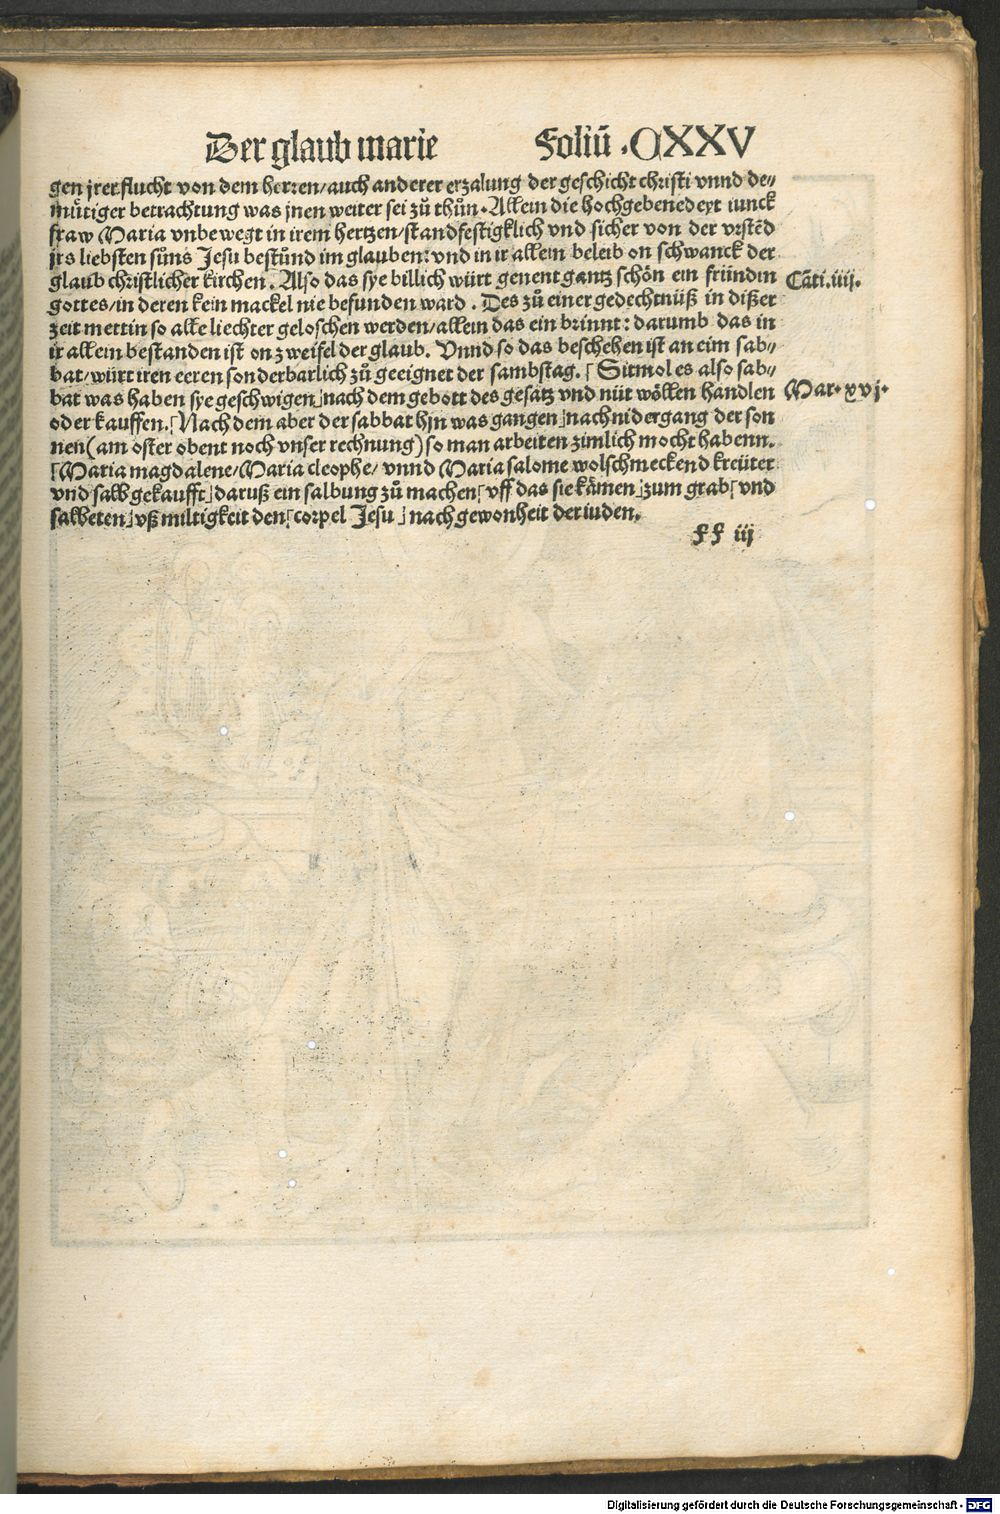 Der glaub marie Foliū .CXXV
gen jrer flucht von dem herren/auch anderer erzalung der geschicht christi vnnd de⸗
mu̇tiger betrachtung was jnen weiter sei zů thůn. Allein die hochgebenedeyt iunck
fraw Maria vnbewegt in irem hertzen/standfestigklich vnd sicher von der vrstēd
jrs liebsten süns Jesu bestůnd im glauben: vnd in ir allein beleib on schwanck der
glaub christlicher kirchen. Also das sye billich würt genent gantz schön ein fründin Cāti.iiij.
gottes/in deren kein mackel nie befunden ward. Des zů einer gedechtnüß in dißer
zeit mettin so alle liechter geloschen werden/allein das ein brinnt: darumb das in
ir allein bestanden ist on zweifel der glaub. Vnnd so das beschehen ist an eim sab⸗
bat/würt iren eeren sonderbarlich zů geeignet der sambstag. ⌈Sitmol es also sab⸗
bat was haben sye geschwigen⌋nach dem gebott des gesatz vnd nüt wöllen handlen Mar. xvj.
oder kauffen.⌈Nach dem aber der sabbat hjn was gangen⌋nach nidergang der son
nen(am oster obent noch vnser rechnung)so man arbeiten zimlich mocht habenn.
⌈Maria magdalene/Maria cleophe/ vnnd Maria salome wolschmeckend kreüter
vnd salb gekaufft⌋daruß ein salbung zů machen⌈vff das sie kämen⌋zum grab⌈vnd
salbeten⌋vß miltigkeit den⌈corpel Jesu⌋nach gewonheit der iuden.
ff iij
Digitalisierung gefördert durch die Deutsche Forschungsgemeinschaft - DFG